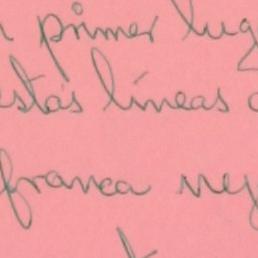 primer lug
estas líneas
franca